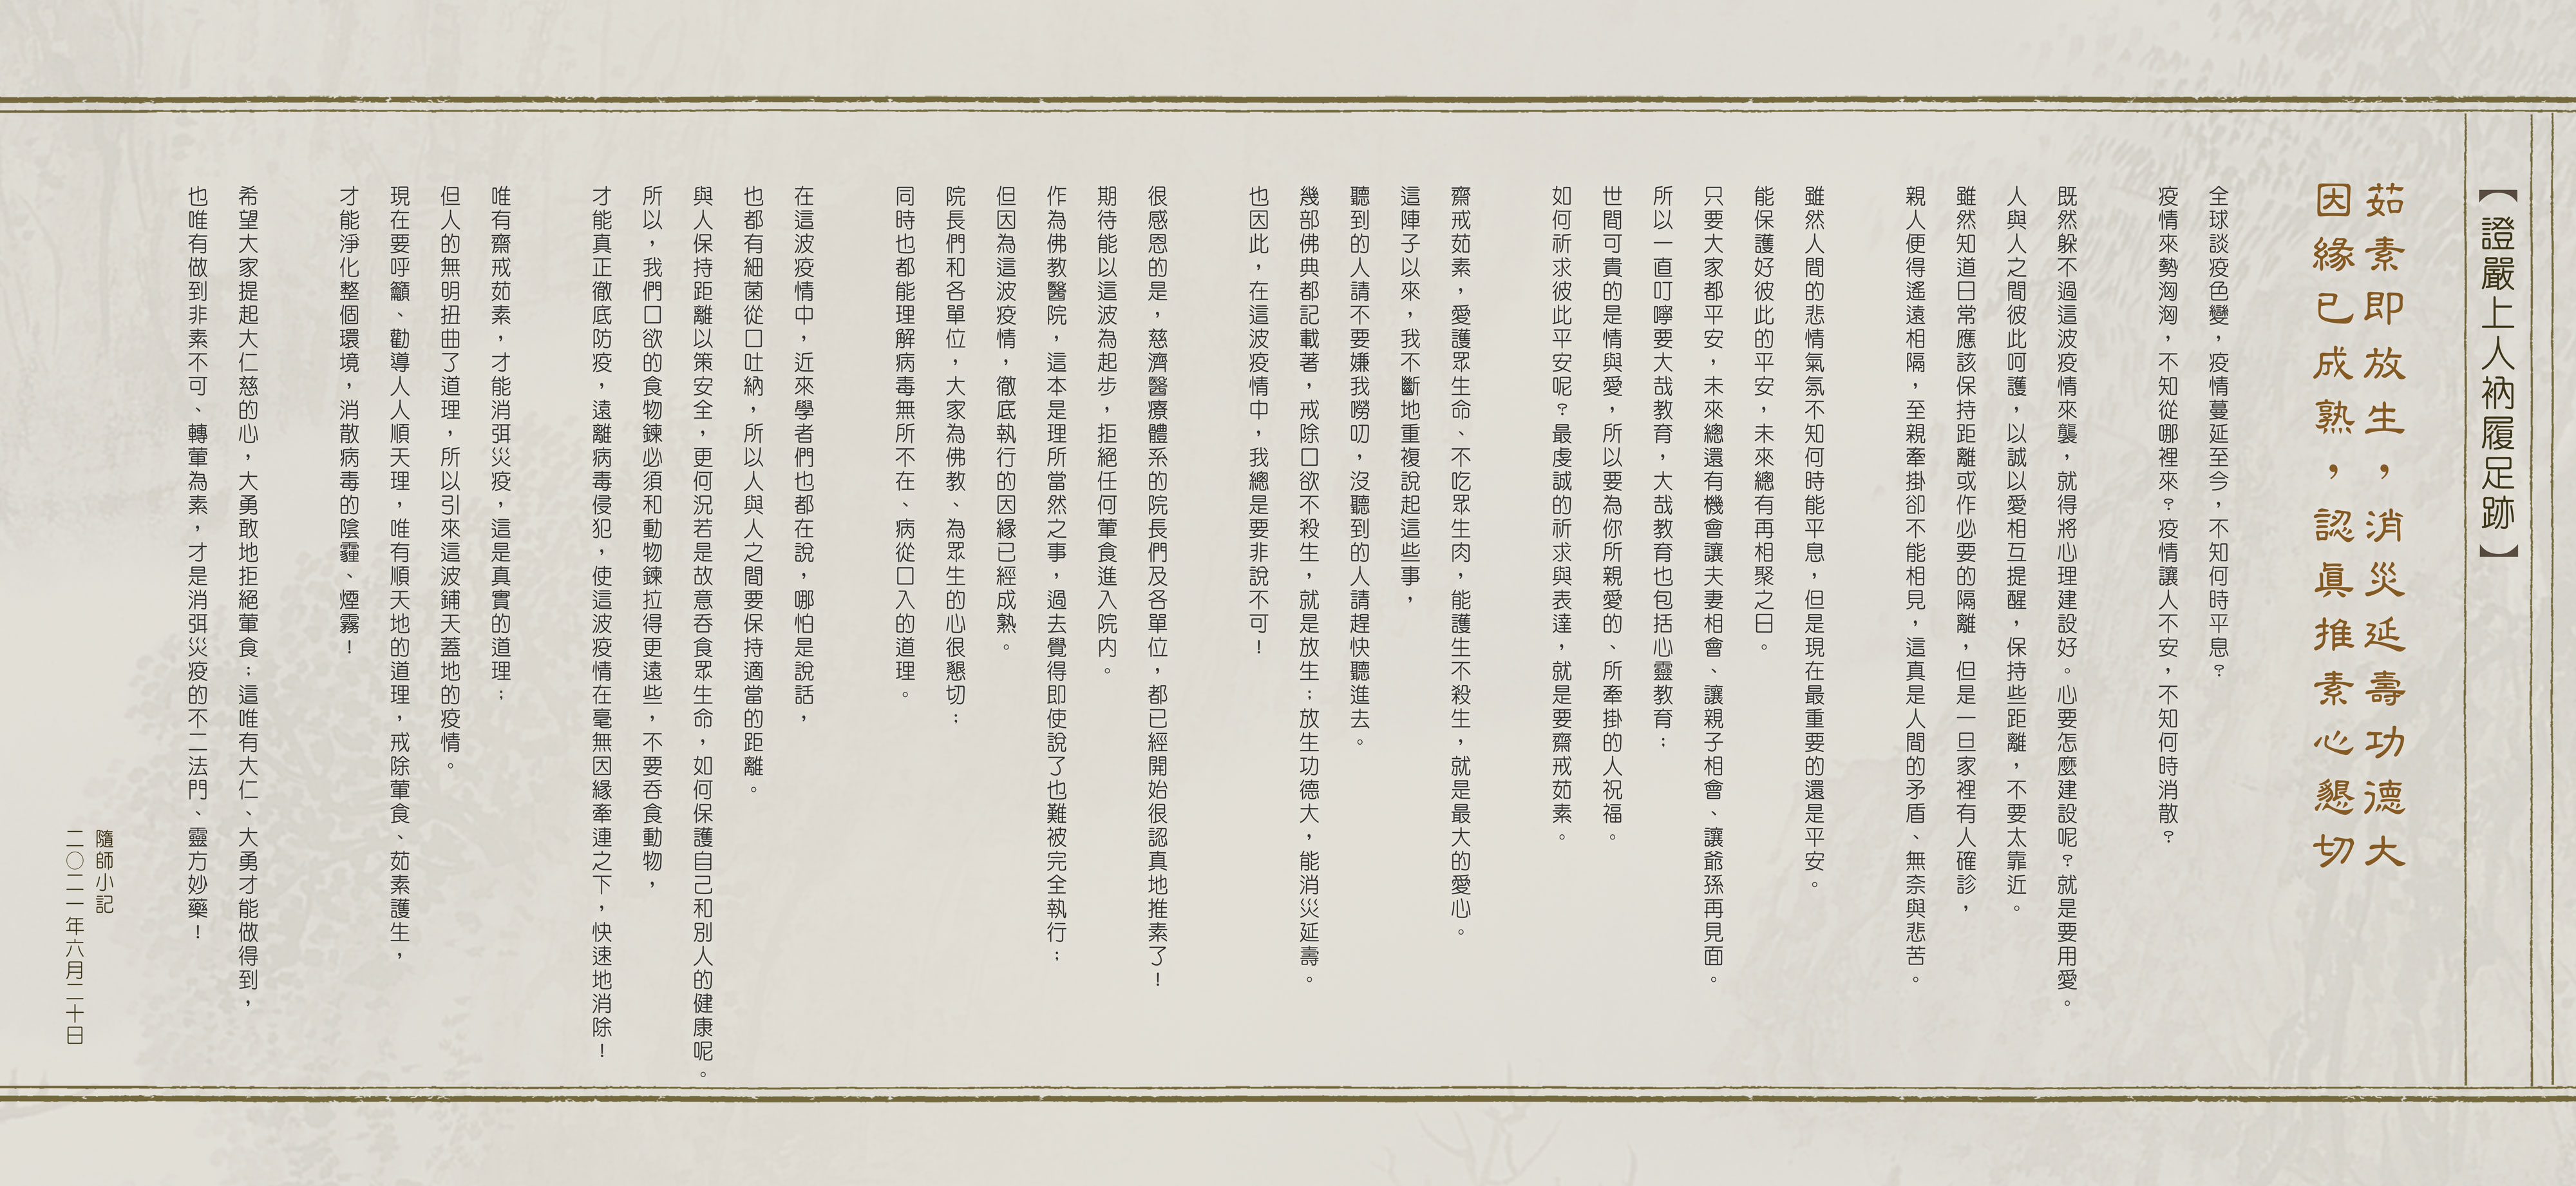 【證嚴上人衲履足跡】
茹素即放生，消災延壽功德大
因緣已成熟，認真推素心懇切
全球談疫色變，疫情蔓延至今，不知何時平息？
疫情來勢洶洶，不知從哪裡來？疫情讓人不安，不知何時消散？
既然躲不過這波疫情來襲，就得將心理建設好。心要怎麼建設呢？就是要用愛。
人與人之間彼此呵護，以誠以愛相互提醒，保持些距離，不要太靠近。
雖然知道日常應該保持距離或作必要的隔離，但是一旦家裡有人確診，
親人便得遙遠相隔，至親牽掛卻不能相見，這真是人間的矛盾、無奈與悲苦。
雖然人間的悲情氣氛不知何時能平息，但是現在最重要的還是平安。
能保護好彼此的平安，未來總有再相聚之日。
只要大家都平安，未來總還有機會讓夫妻相會、讓親子相會、讓爺孫再見面。
所以一直叮嚀要大哉教育，大哉教育也包括心靈教育；
世間可貴的是情與愛，所以要為你所親愛的、所牽掛的人祝福。
如何祈求彼此平安呢？最虔誠的祈求與表達，就是要齋戒茹素。
齋戒茹素，愛護眾生命、不吃眾生肉，能護生不殺生，就是最大的愛心。
這陣子以來，我不斷地重複說起這些事，
聽到的人請不要嫌我嘮叨，沒聽到的人請趕快聽進去。
幾部佛典都記載著，戒除口欲不殺生，就是放生；放生功德大，能消災延壽。
也因此，在這波疫情中，我總是要非說不可！
很感恩的是，慈濟醫療體系的院長們及各單位，都已經開始很認真地推素了！
期待能以這波為起步，拒絕任何葷食進入院內。
作為佛教醫院，這本是理所當然之事，過去覺得即使說了也難被完全執行；
但因為這波疫情，徹底執行的因緣已經成熟。
院長們和各單位，大家為佛教、為眾生的心很懇切；
同時也都能理解病毒無所不在、病從口入的道理。
在這波疫情中，近來學者們也都在說，哪怕是說話，
也都有細菌從口吐納，所以人與人之間要保持適當的距離。
與人保持距離以策安全，更何況若是故意吞食眾生命，如何保護自己和別人的健康呢。
所以，我們口欲的食物鍊必須和動物鍊拉得更遠些，不要吞食動物，
才能真正徹底防疫，遠離病毒侵犯，使這波疫情在毫無因緣牽連之下，快速地消除！
唯有齋戒茹素，才能消弭災疫，這是真實的道理；
但人的無明扭曲了道理，所以引來這波鋪天蓋地的疫情。
現在要呼籲、勸導人人順天理，唯有順天地的道理，戒除葷食、茹素護生，
才能淨化整個環境，消散病毒的陰霾、煙霧！
希望大家提起大仁慈的心，大勇敢地拒絕葷食；這唯有大仁、大勇才能做得到，
也唯有做到非素不可、轉葷為素，才是消弭災疫的不二法門、靈方妙藥！
隨師小記
二〇二一年六月二十日